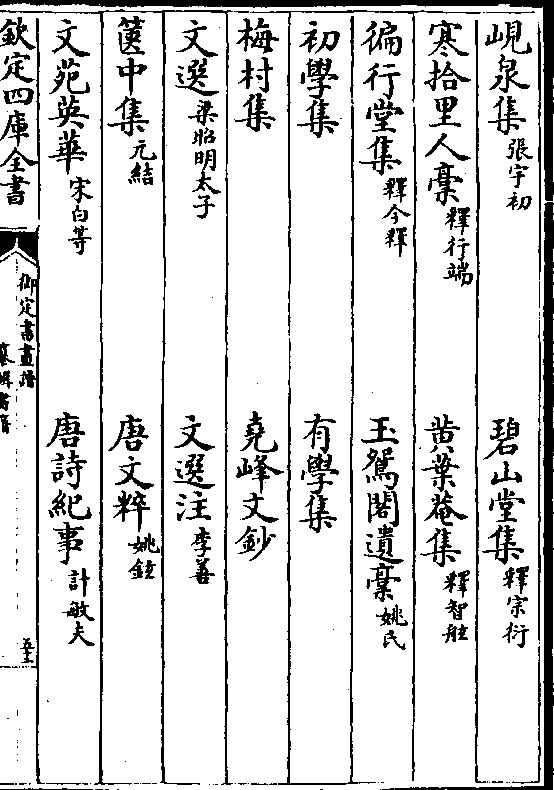 峴泉集 張宇初 碧山堂集 釋宗衍
寒拾里人稾 釋行端 黄葉菴集 釋智舷
徧行堂集 釋今釋 玉鴛閣遺稾 姚氏
初學集 有學集
梅村集 堯峰文鈔
文選 梁昭明太子 文選注 李善
篋中集 元結 唐文粹 姚鉉
文苑英華 宋白等 唐詩紀事 計敏夫
欽定四庫全書
御定書畫譜
纂輯書籍